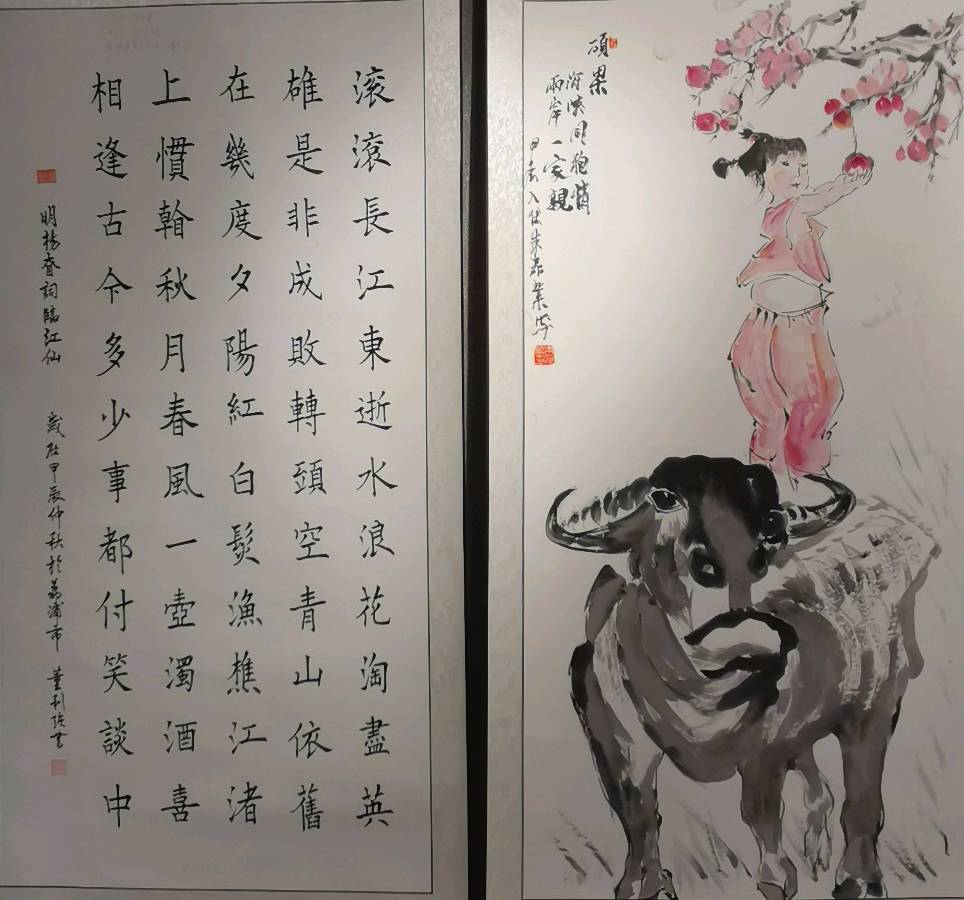 滚滚長江東逝水浪花淘盡英
雄是非成敗轉頭空青山依舊
在幾度夕陽紅白髮漁樵江渚
上慣翰秋月春風一壺濁酒喜
相逢古今多少事都付笑談中
明楊眘詞臨江仙 歲在甲辰仲秋於荔浦市
碩果
海峽同胞情
兩岸一家親